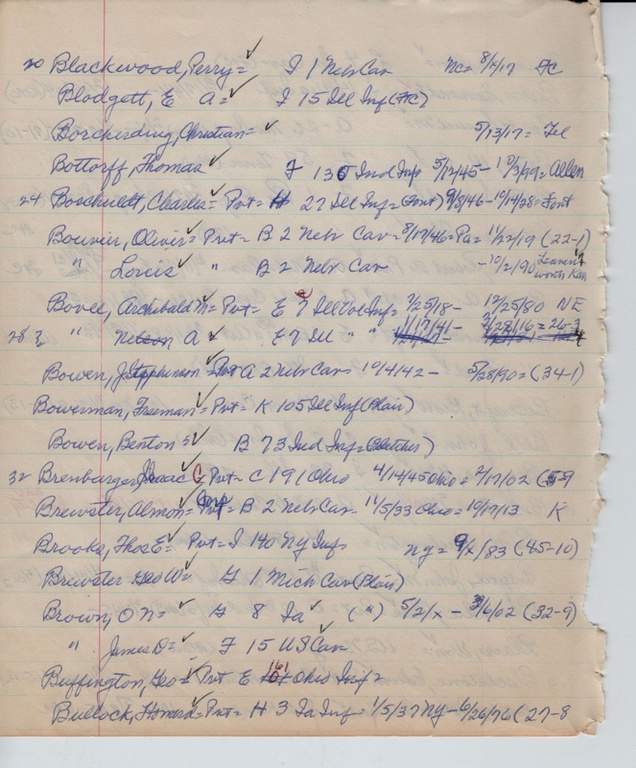 20 Blackwood, Perry = ✓ I 1 Neb Cav Nc = 8/x/17 FC
Blodgett, E A = ✓ I 15 Ill Inf (FC)
Borcherding, Christian = ✓ 5/13/17 = Tel
Bottorff, Thomas ✓ F 135 Ind Inf 5/12/45 - 10/3/99 = Allen
24 Boschult, Charles = Pvt = H 27 Ill Inf = (Font) 9/8/46 - 10/14/28 = Font
Bouvier, Oliver = Pvt = B 2 Nebr Cav = 8/17/46 = Pa = 11/22/19 (22-1)
" Louis ✓ " B 2 Nebr Cav - 10/2/90 Leavenworth Kan
Bovee, Archibald M = Pvt = E 7 Ill Vol Inf = 7/25/18 - 12/25/80 NE
28 " Nelson A ✓ E 7 Ill " " 1/17/41 - 2/28/16 = 26-3
Bowen, J Stephenson = Pvt A 2 Nebr Cav 10/4/42 - 5/28/90 = (34-1)
Bowerman, Freeman = Pvt = K 105 Ill Inf (Blair)
Bowen, Benton S ✓ B 73 Ind Inf =
32 Brenbarger, Isaac C Pvt = C 191 Ohio 4/14/45 Ohio = 2/17/02
Brewster, Almon = B 2 Nebr Cav = 11/5/33 Ohio = 10/17/13 K
Brooks, Thos E = Pvt = I 140 Ny Inf ny = 9/x/83 (45-10)
Brewster Geo W = G 1 Mich Cav (Blair)
Brown, O N = ✓ G 8 Ia ✓ (") 5/2/x - 3/6/02 (32-9)
" James O = ✓ F 15 US Cav
Buffington, Geo = Pvt E 161 Ohio Inf =
Bullock, Howard = Pvt = H 3 Ia Inf = 1/5/37 Ny - 6/26/76 (27-8